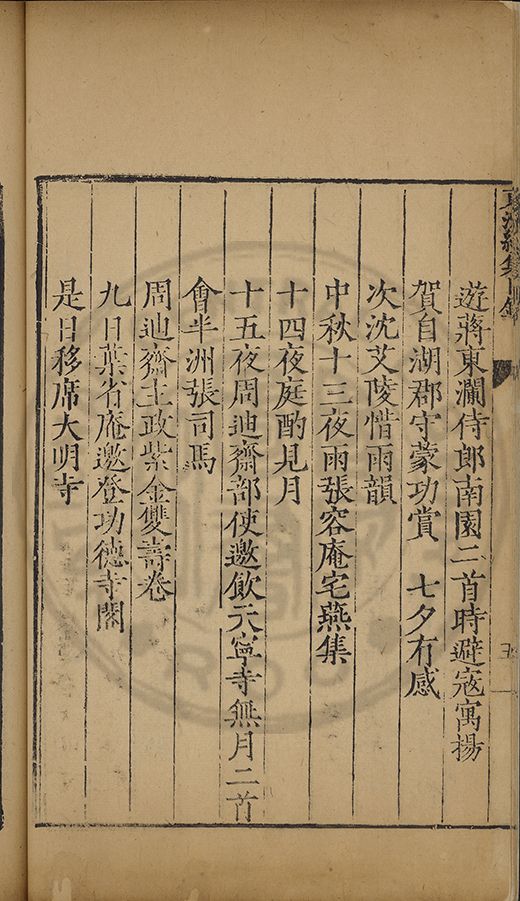 遊蔣東瀾侍郎南園二首時避寇寓揚
賀自湖郡守蒙功賞　七夕有感
次沈艾陵惜雨韻
中秋十三夜雨張容庵宅燕集
十四夜庭酌見月
十五夜周迪齋部使邀飲天寧寺無月二首
會半洲張司馬
周迪齋主政紫金雙壽卷
九日葉省庵邀登功德寺閣
是日移席大明寺